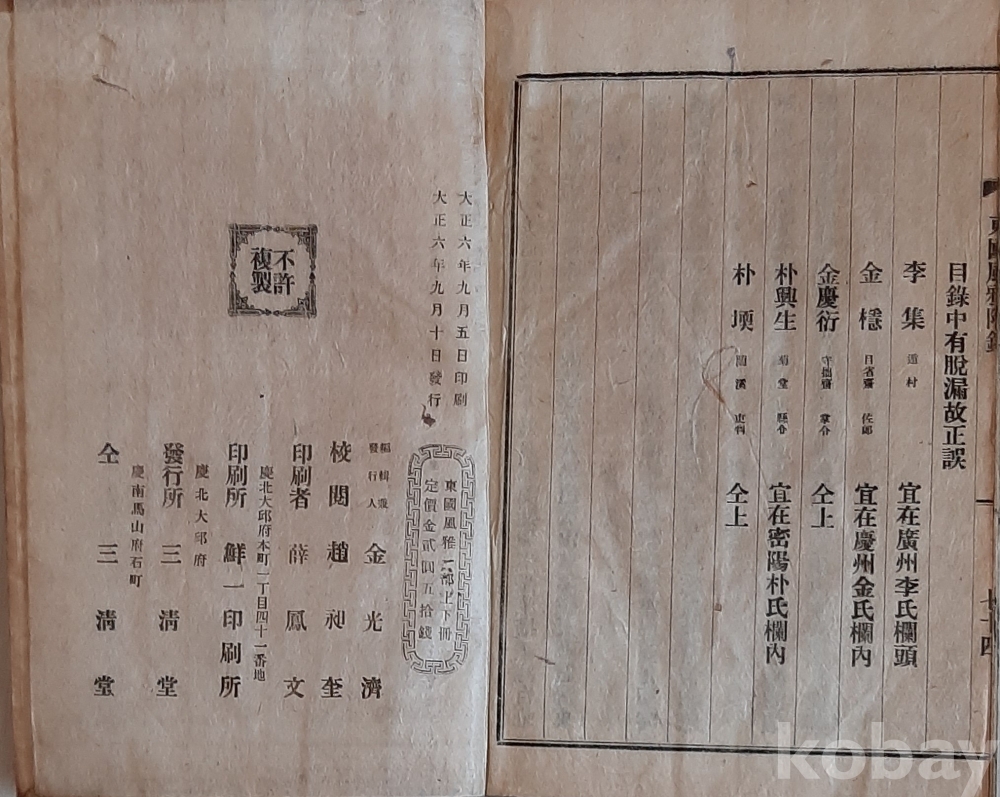 目錄中有脫漏故正誤
李集 遁村 宜在廣州李氏欄頭
金檼 日省齋 佐郎 宜在慶州金氏欄內
金慶衍 守拙齋 掌令 仝上
朴興生 菊堂 縣令 宜在密陽朴氏欄內
朴堧 蘭溪 吏判 仝上
大正六年九月五日印刷
大正六年九月十日發行
不許
複製
東國風雅一部上下冊
定價金貳圓五拾錢
編輯兼
發行人 金光濟
校閱 趙昶奎
印刷者 薛鳳文
慶北大邱府本町一丁目四十一番地
印刷所 鮮一印刷所
慶北大邱府
發行所 三清堂
慶南馬山府石町
仝 三清堂
kobay